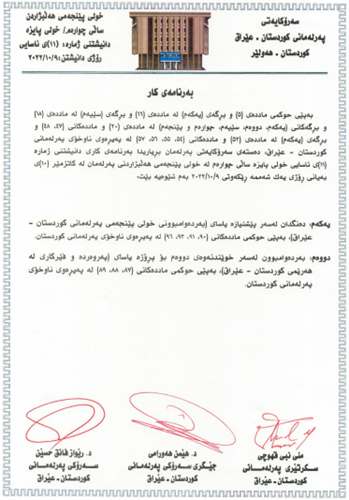 سەرۆکایەتی
پەرلەمانی کوردستان - عێراق
کوردستان - هەولێر
خولی پێنجەمی هەڵبژاردن
ساڵی چوارەم/ خولی پایزە
دانیشتنی ژمارە: (١١)ی ئاسایی
ڕۆژی دانیشتن: ٢٠٢٢/١٠/٩
بەرنامەی کار
بەپێی حوکمی ماددەی (٥) و بڕگەی (یەکەم) لە ماددەی (١٦) و بڕگەی (یەکەم) لە ماددەی (١٨)
و بڕگەکانی (یەکەم، دووەم، سێیەم، چوارەم و پێنجەم) لە ماددەی (٢٠) و ماددەکانی (٤٧، ٤٨) و
بڕگەی (یەکەم) لە ماددەی (٥٣) و ماددەکانی (٥٥، ٥٦، ٥٧) لە پەیڕەوی ناوخۆی پەرلەمانی
کوردستان - عێراق، دەستەی سەرۆکایەتی پەرلەمان بڕیاریدا بەرنامەی کاری دانیشتنی ژمارە
(١١)ی ئاسایی خولی پایزە ساڵی چوارەم لە خولی پێنجەمی هەڵبژاردنی پەرلەمان لە کاتژمێر (١٠)ی
بەیانی ڕۆژی یەک شەممە ڕێکەوتی ٢٠٢٢/١٠/٩ بەم شێوەیە بێت:
یەکەم: دەنگدان لەسەر پێشنیازە یاسای (بەردەوامبوونی خولی پێنجەمی پەرلەمانی کوردستان -
عێراق)، بەپێی حوکمی ماددەکانی (٩٠، ٩١، ٩٣، ٩٦) لە پەیڕەوی ناوخۆی پەرلەمانی کوردستان.
دووەم: بەردەوامبوون لەسەر خوێندنەوەی دووەم بۆ پڕۆژە یاسای (پەروەردە و فێرکاری لە
هەرێمی کوردستان - عێراق)، بەپێی حوکمی ماددەکانی (٨٧، ٨٨، ٨٩) لە پەیڕەوی ناوخۆی
پەرلەمانی کوردستان.
منی نبی قهوچی
سکرتێری پەرلەمانی
کوردستان - عێراق
د. هێمن هەورامی
جێگری سەرۆکی پەرلەمانی
کوردستان - عێراق
د. ڕێواز فائق حسین
سەرۆکی پەرلەمانی
کوردستان - عێراق